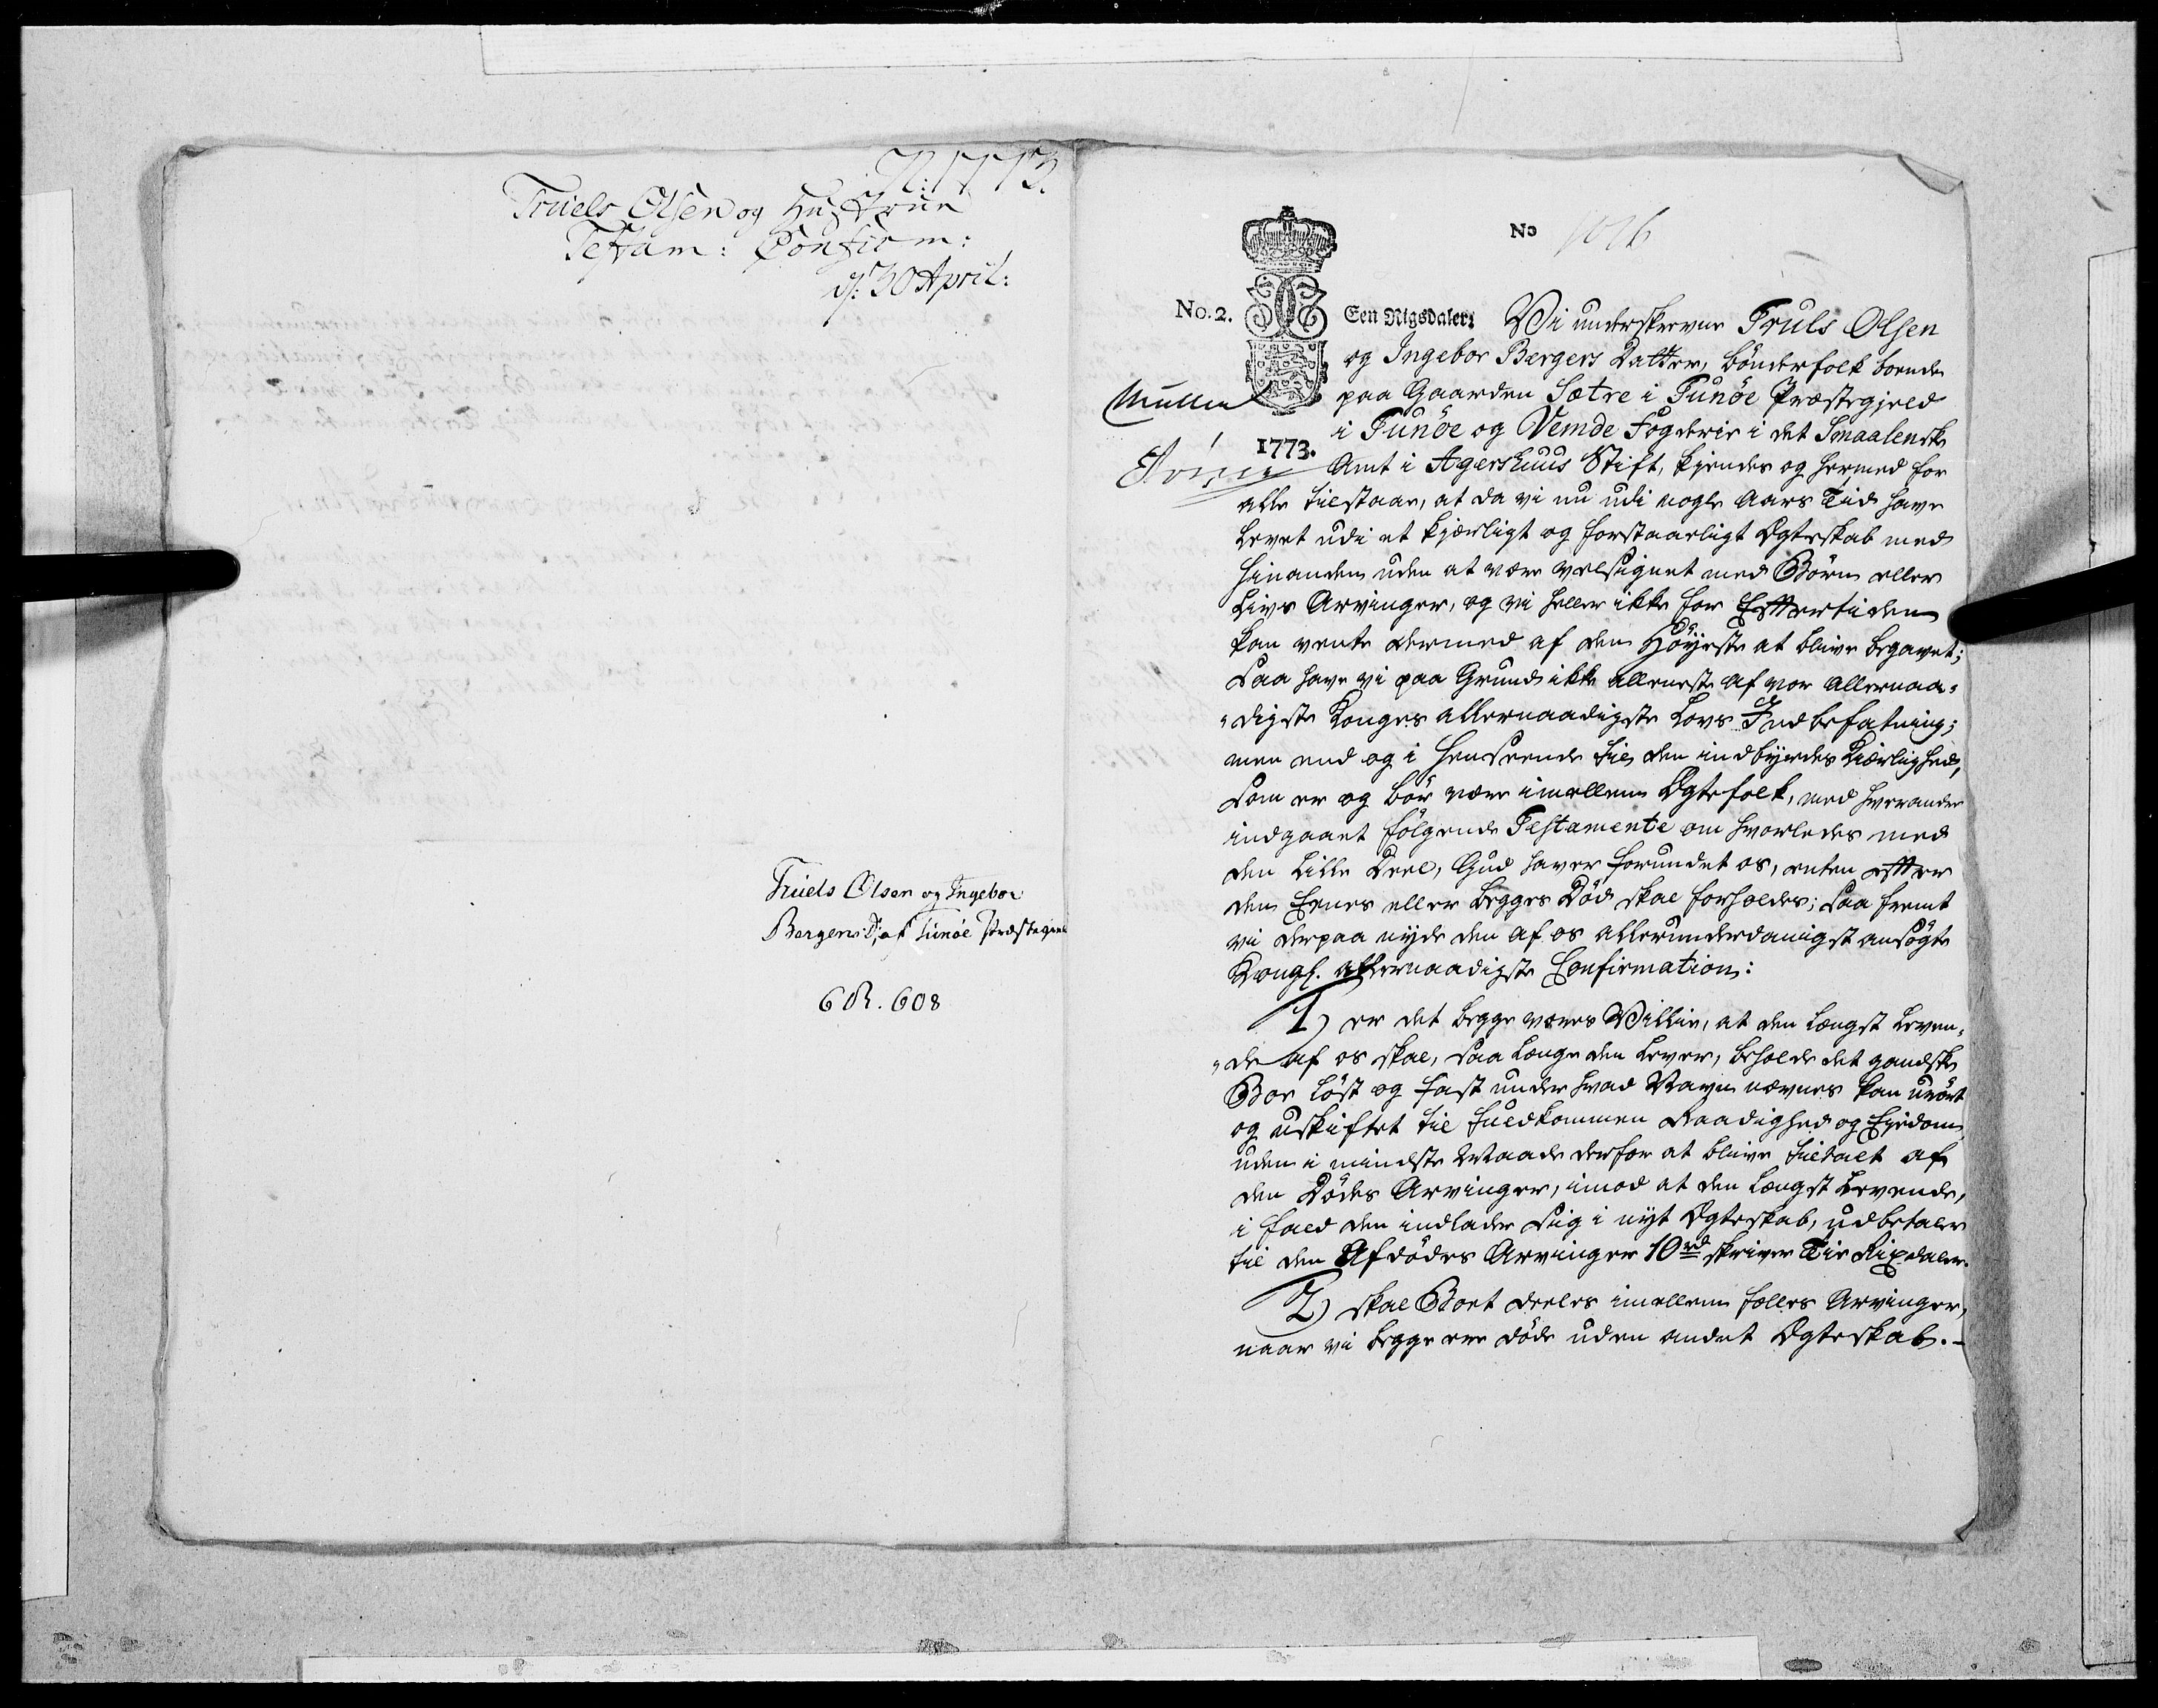 A: 1773.
Truels Olsen og Hustrue
Testam: Confirm:
d: 30 April:
Truels Olsen og Ingebor
Bergers D; af Tunöe Præstegield
6 R. 60 s
No 1016
No. 2. Een Rigsdaler: Vi underskrevne Truls Olsen
og Ingebor Bergers Datter, Bönderfolk boende
Müller paa Gaarden Sætre i Tunöe Præstegjeld
i Tunöe og Vemde Fogderie i det Smaalenske
1773. Amt i Agershuus Stift, kjendes og hermed for
alle tilstaar, at da vi nu udi nogle Aars Tid have
levet udi et kjærligt og forstaaeligt Ægteskab med
hinanden uden at være velsignet med Börn eller
Livs Arvinger, og vi heller ikke for Efftertiden
kan vente dermed af den Höyeste at blive begavet;
Saa have vi paa Grund ikke alleneste af vor Allernaa-
digste Konges allernaadigste Lovs Indbefatning;
men end og i Henseende til den indbyrdes Kiærlighed,
som er og bör være imellem Ægtefolk, med hverandre
indgaaet fölgende Testamente om hvorledes med
den lille Deel, Gud haver forundet os, enten effter
den Eenes eller begges Död skal forholdes; saa fremt
vi derpaa nyde den af os allerunderdanigst ansögte
Kongl. allernaadigste Confirmation:
1) er det begge vores Villie, at den længst leven-
de af os skal, saa længe den lever, beholde det gandske
Boe löst og fast under hvad Navn nævnes kan urört
og uskiftet til fuldkommen Raadighed og Eiedom,
uden i mindste Maade derfor at blive tiltalt af
den Dödes Arvinger, imod at den længst Levende,
i fald den indlader sig i nyt Ægteskab, udbetaler
til den Afdödes Arvinger 10 rd skriver Tie Rixdaler.
2) skal Boet deeles imellem fælles Arvinger,
naar vi begge ere döde uden andet Ægteskab.